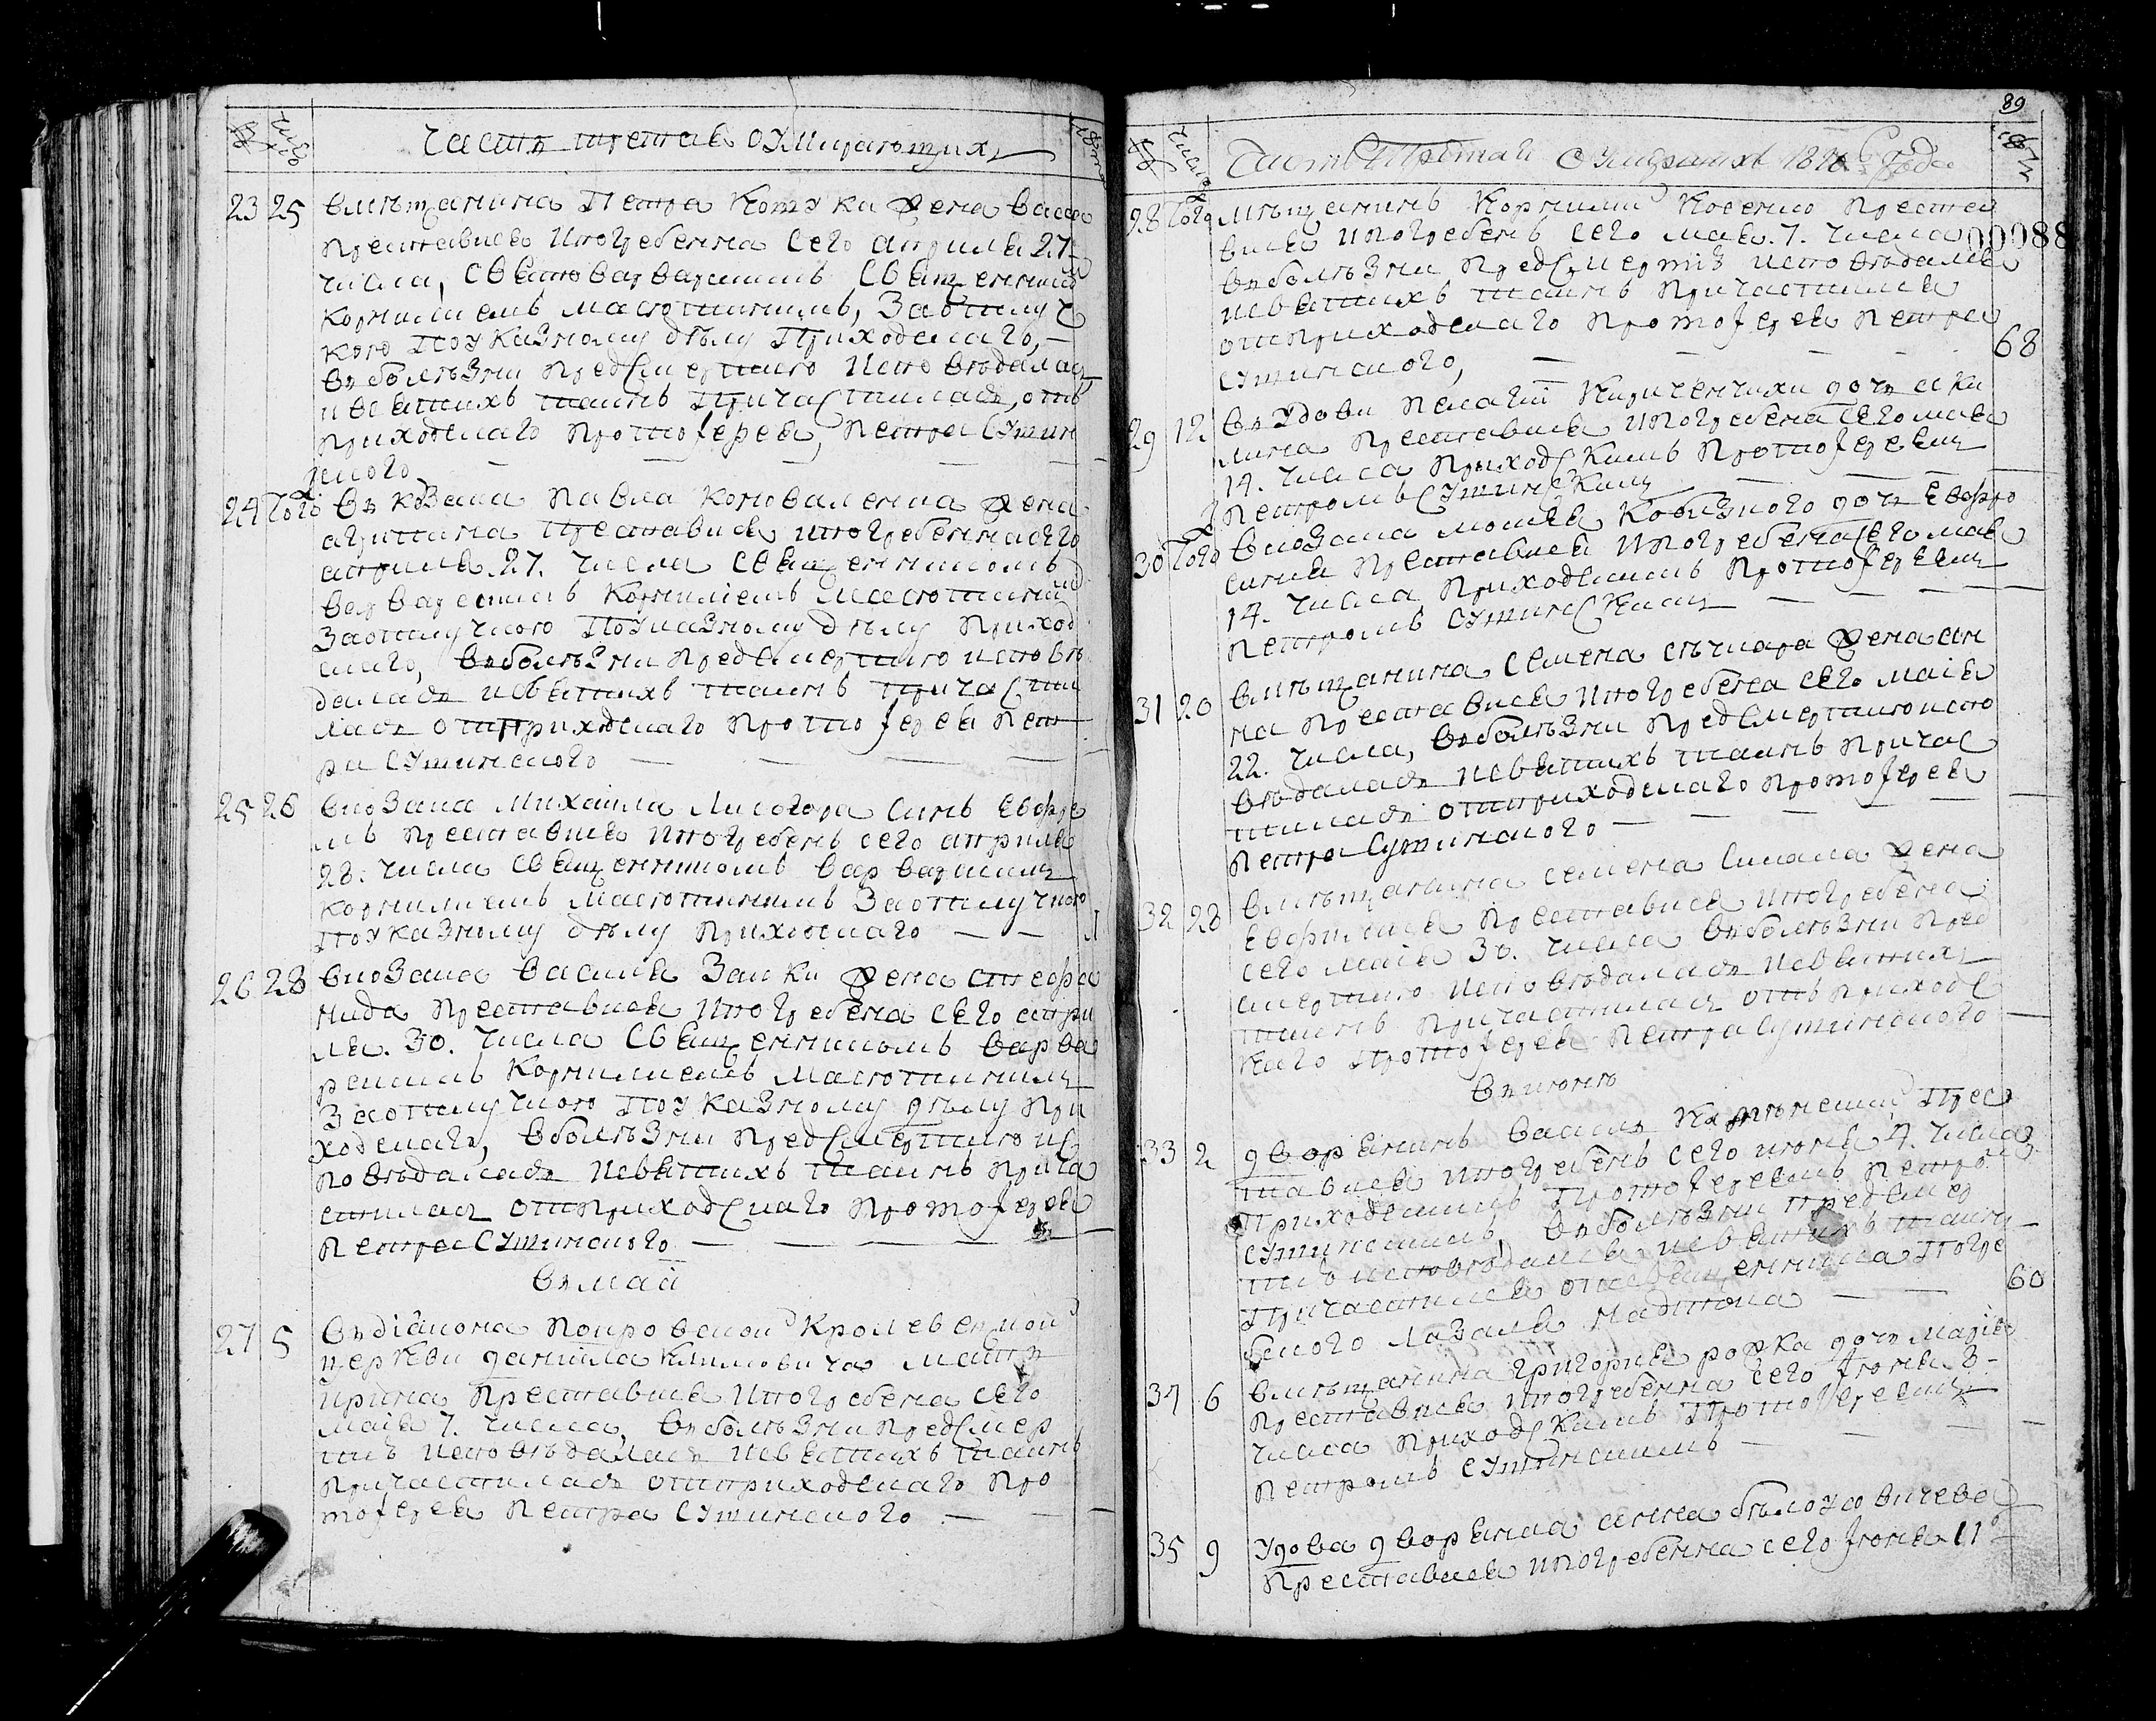 Часть третая О Умирающих
23 25 Вмѣщанина Петра Котуки жена Васса
преставися ипогребенна сего априля 27-
числа, Свято варварскимъ Священникомъ
Корнилиемъ Мастотинимъ, Заотлуч
кою поуказному дѣлу Приходскаго,
вболѣзни предсмертною исповѣдалась
исвятихъ таинъ Причастилась, отъ
приходскаго Протоіерея, Петра Сутин
ского
24 того въ козака Павла Коновалента жена
агрипина Преставися ипогребенна сего
априля 27. числа Священникомъ
варварскимъ Корнилиемъ
Заотлучкою Поуказному дѣлу приход
скаго, вболѣзни предсмертною исповѣ
далась исвятихъ таинъ причасти
лась отприходскаго Протоіерея Пет
ра Сутинского
25 26 вкозака Михаила Лисогора синъ Ефре
мъ преставися ипогребенъ сего априля
28. числа Священникомъ варварскимъ
корнилиемъ Мастотинимъ Заотлучкою
поуказному дѣлу приходскаго
26 28 вкозака василія Заики жена стефа
нида преставися ипогребена сего апри
ля. 30. числа Священникомъ варва
рскимъ Корнилиемъ Мастотинимъ
Заотлучкою поуказному дѣлу При
ходскаго, вболѣзни предсмертною ис
повѣдалась исвятихъ таинъ прича
стилась отприходскаго протоіерея
Петра Сутинского
въ маій
27 5 въдіякона Покровской Кролевецкой
церкви даниила Климовича мать
ирина преставися ипогребена сего
маія 7. числа, въболѣзни предсмер
тнѣ исповѣдалась исвятихъ таинъ
причастилась отприходскаго про
тоіерея Петра Сутинского
89
Часть третая О Умершихъ 1816 года
00088
28 того мѣщанинъ Корнилий Косенко престав
ився ипогребенъ сего мая. 7. числа
вболѣзни предсмертнѣ исповѣдался
исвятихъ таинъ причастился
отприходскаго протоіерея Петра
Сутинского,
68
29 12 въ удови Пелагіи Кириченчихи дочь аки
лина преставися ипогребена сего мая
14. числа приходскимъ Протоіереемъ
Петромъ Сутинскимъ
30 того вкозака мошея Кобизкого дочь Евфро
синия преставися ипогребена сего мая
14. числа приходскимъ протоіереемъ
Петромъ Сутинскимъ
31 20 вмѣщанина семена сѣчкара жена ан
на преставися ипогребена сего маія
22. числа, въболѣзни предсмертною испо
вѣдалась исвятихъ таинъ причас
тилась отприходскаго протоіерея
Петра Сутинского
32 28 вмѣщанина семена Синака жена
Евфимия преставися ипогребена
сего маія 30. числа въболѣзни пред
смертною исповѣдалась исвятихъ
таинъ причастилась отъ приходс
каго протоіерея Петра Сутинского
въ июнѣ
33 2 дворянинъ Василь прес
тавися ипогребенъ сего июня 4. числа
приходскимъ Протоіереемъ Петромъ
Сутинскимъ, въболѣзни предсмер
тнѣ исповѣдался исвятихъ таинъ
причастился отсвященника Погре
бского Лазаря
60
34 6 вмѣщанина григория рожка дочь Марія
преставися ипогребенна сего Іюня 8-
числа приходскимъ протоіереемъ
Петромъ Сутинскимъ
35 9 Удова дворянка анна бѣлоусовичева
преставися ипогребенна сего Іюня 11